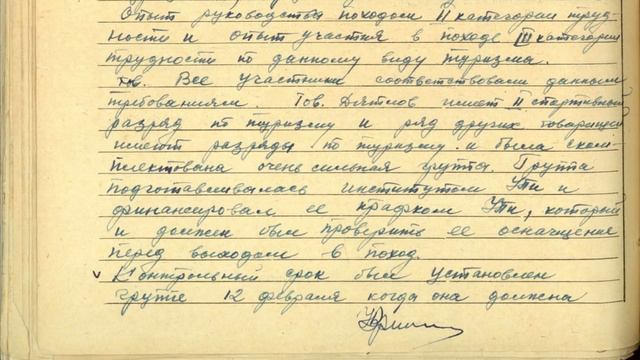 Опыт руководства походом II категории труд-
ности и опыт участия в походе III категории
трудности по данному виду туризма.
Все участники соответствовали данным
требованиям. Тов. Дятлов имеет II спортивный
разряд по туризму и ряд других товарищей
имеют разряды по туризму и была ском-
плектована очень сильная группа. Группа
подготавливалась институтом УПИ и
финансировал ее профком УПИ, который
и должен был проверить ее оснащение
перед выходом в поход.
v Контрольный срок был установлен
группе 12 февраля когда она должна